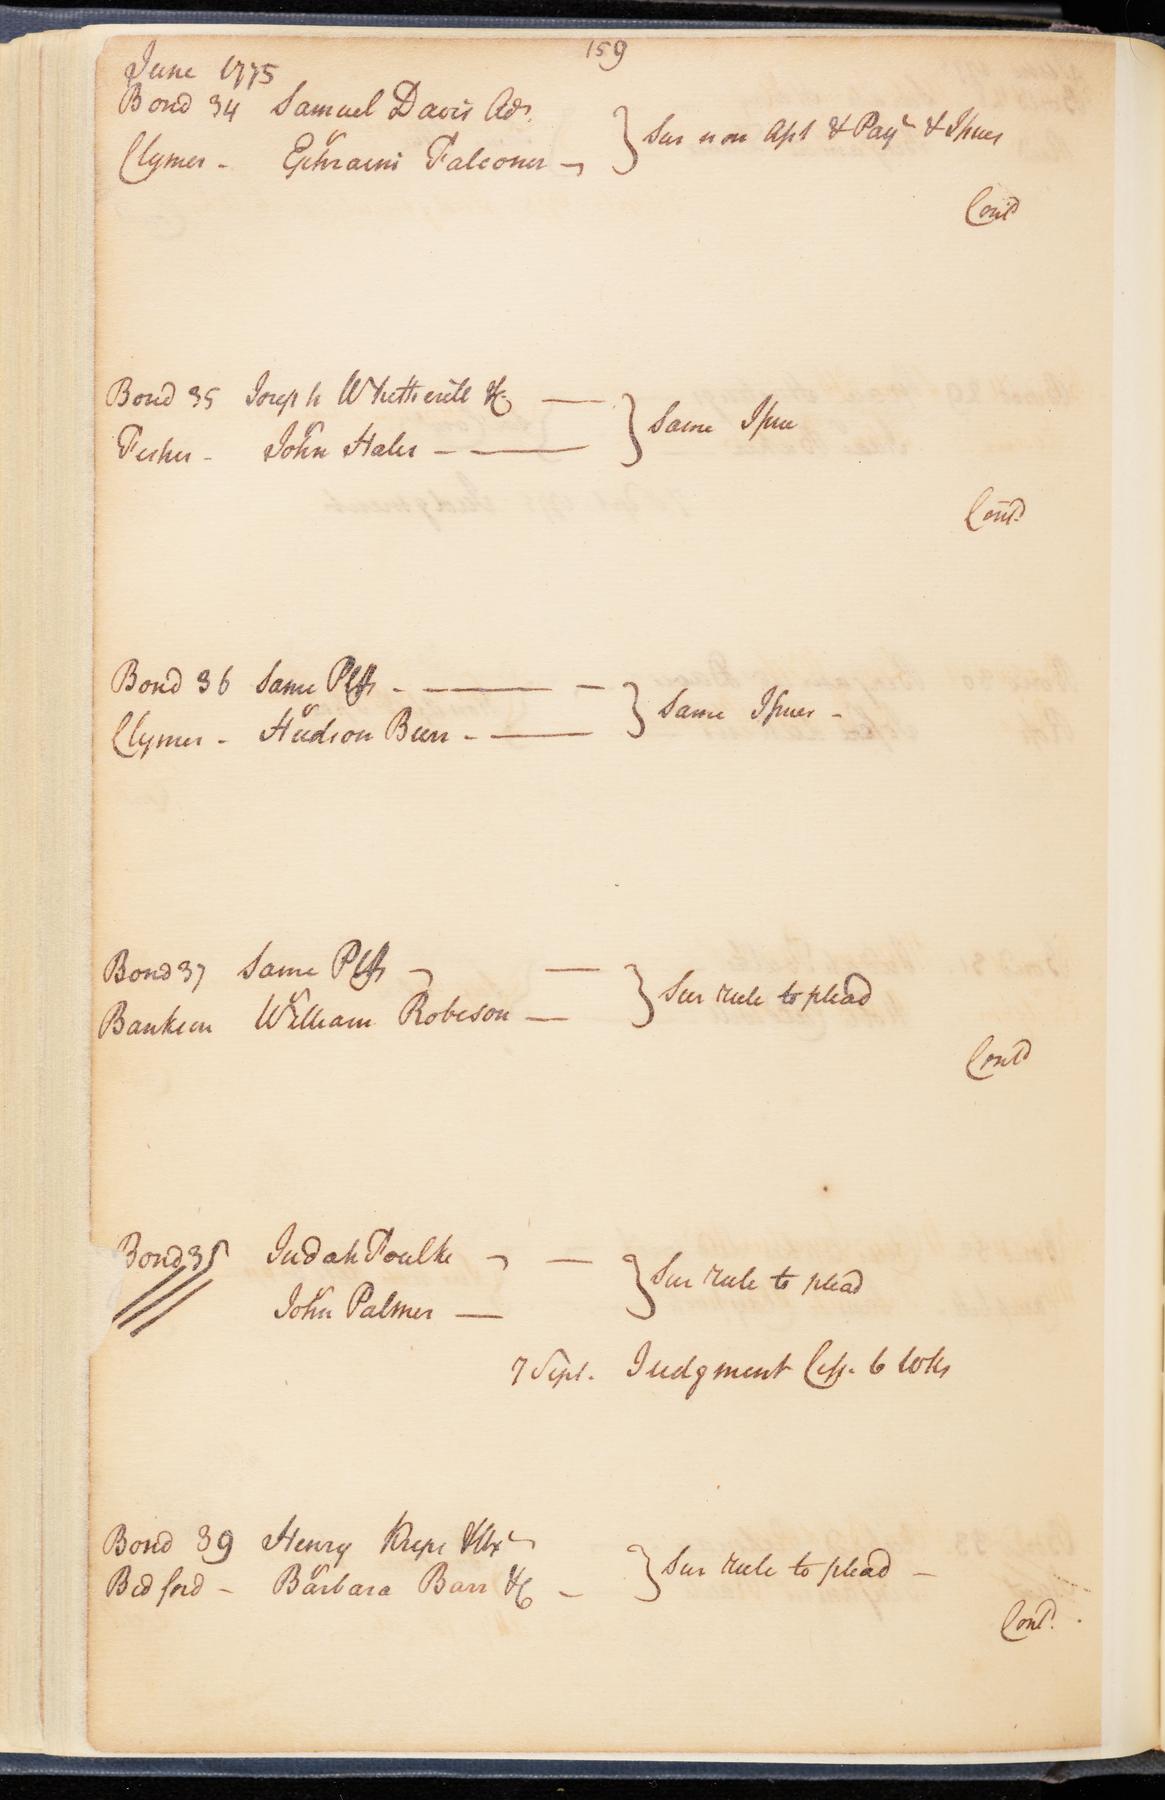 159
June 1775
Bond 34 Samuel Davis Adr.
v
Clymer - Ephraim Falconer
} Sur non Ass't & Pay't & Issues
Cont'd
Bond 35 Joseph Whetherill &c —
v
Fisher - John Hales - —
} Same Issue
Cont'd
Bond 36 Same Plffs - — -
v
Clymer - Hudson Burr - —
} Same Issues -
Bond 37 Same Plffs —
v
Bankson William Robeson —
} Sur rule to plead
Cont'd
Bond 38 Judah Foulke —
v
John Palmer —
} Sur rule to plead
7 Sept. Judgment Cess. 6 Wks
Bond 39 Henry Kreps & Ux
v
Bedford - Barbara Barr &c -
} Sur rule to plead —
Cont'd.